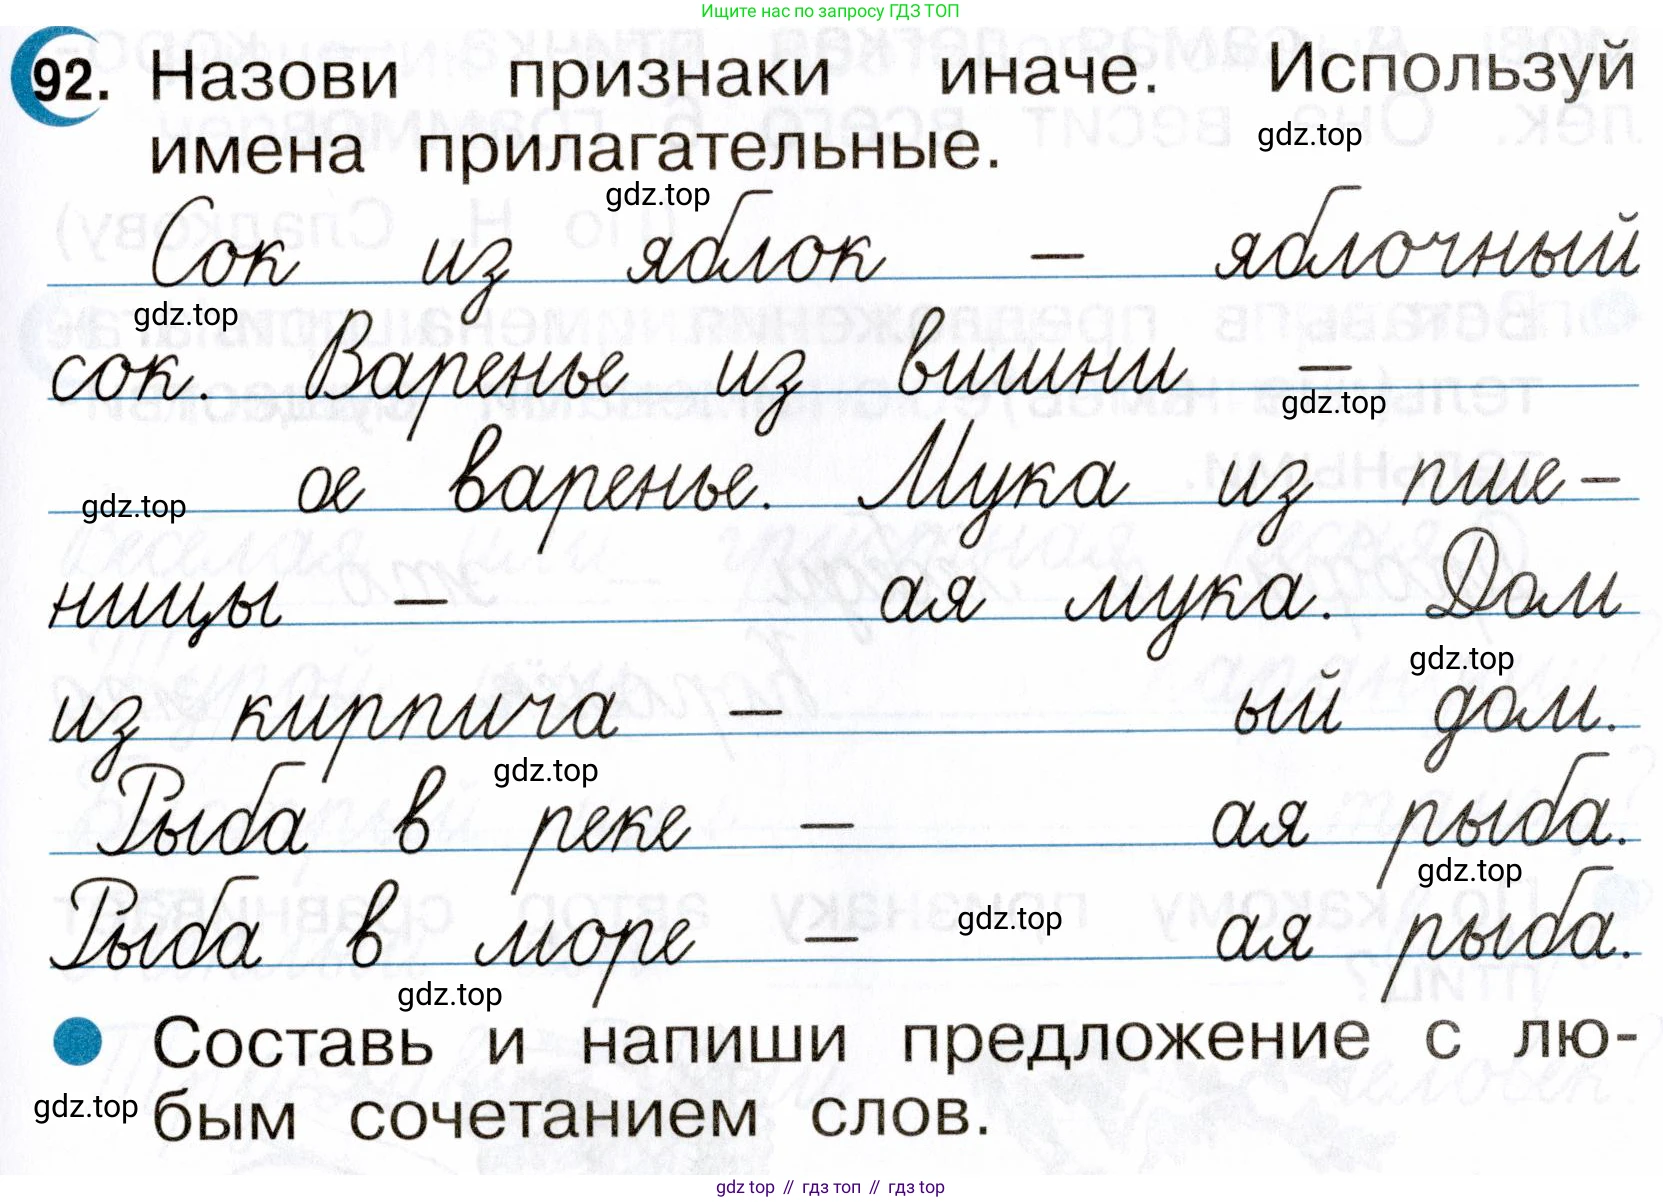 Ищите нас по запросу ГДЗ ТОП
92. Назови признаки иначе. Используй
имена прилагательные.
gdz.top
gdz.top
Сок из яблок – яблочный
gdz.top
сок. Варенье из вишни –
gdz.top
ое варенье. Мука из пше-
gdz.top
ницы – ая мука. Дом
gdz.top
из кирпича – ый дом.
gdz.top
Рыба в реке – ая рыба.
gdz.top
Рыба в море – ая рыба.
gdz.top
gdz.top
Составь и напиши предложение с лю-
gdz.top
бым сочетанием слов.
gdz.top // гдз топ // гдз top